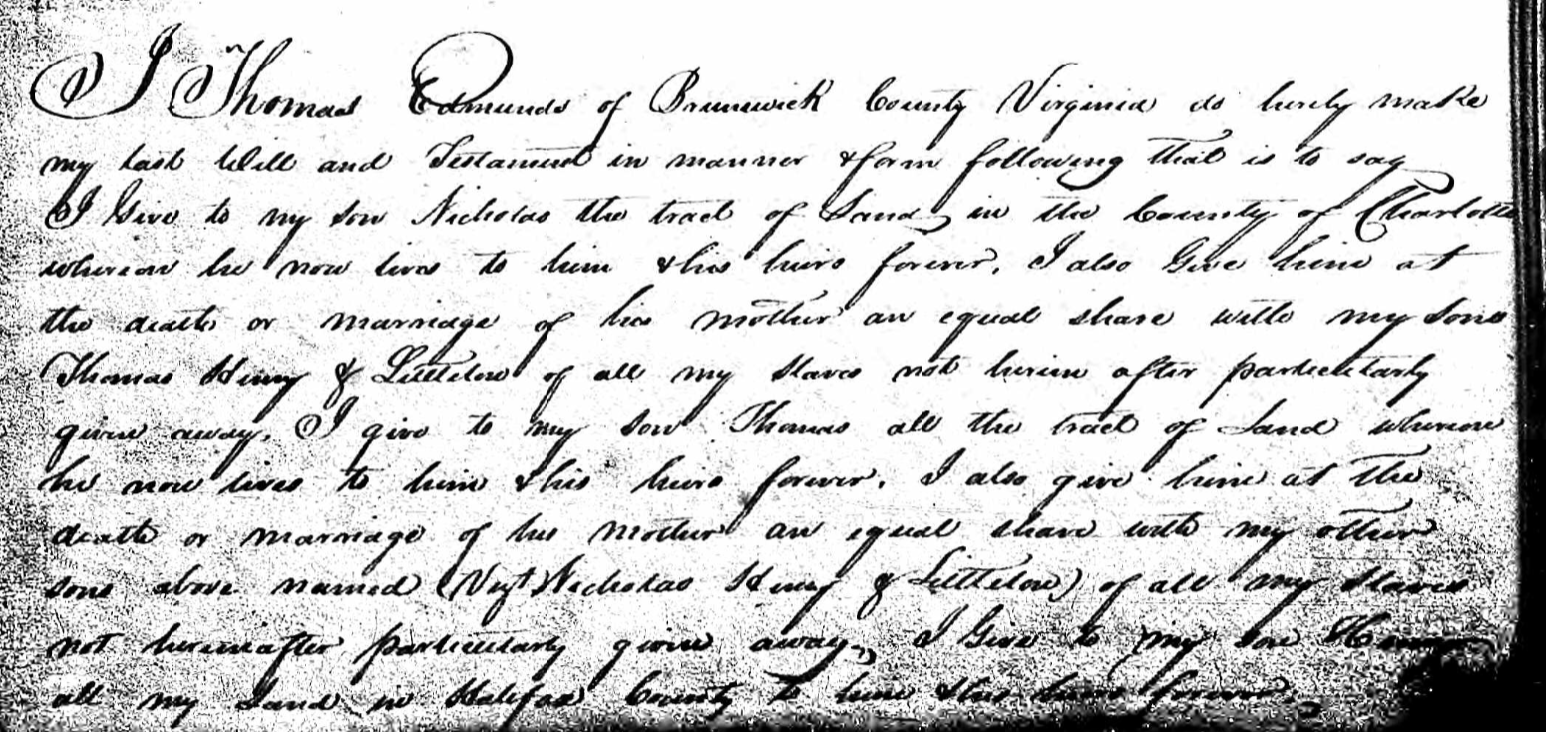 I Thomas Edmunds of Brunswick County Virginia do herely make
my last Will and Testament in manner & form following that is to say
I Give to my son Nicholas the tract of Land, in the County of Charlotte
whereon he now lives to him & his heirs forever. I also Give him at
the death or marriage of his mother an equal share with my sons
Thomas Henry & Littleton of all my slaves not herein after particularly
given away. I give to my son Thomas all the tract of Land whereon
he now lives to him & his heirs forever. I also give him at the
death or marriage of his mother an equal share with my other
sons above named (Vizt Nicholas Henry & Littleton) of all my slaves
not hereinafter particularly given away, I Give to my son Henry
all my Land in Halifax County to him & his heirs forever.